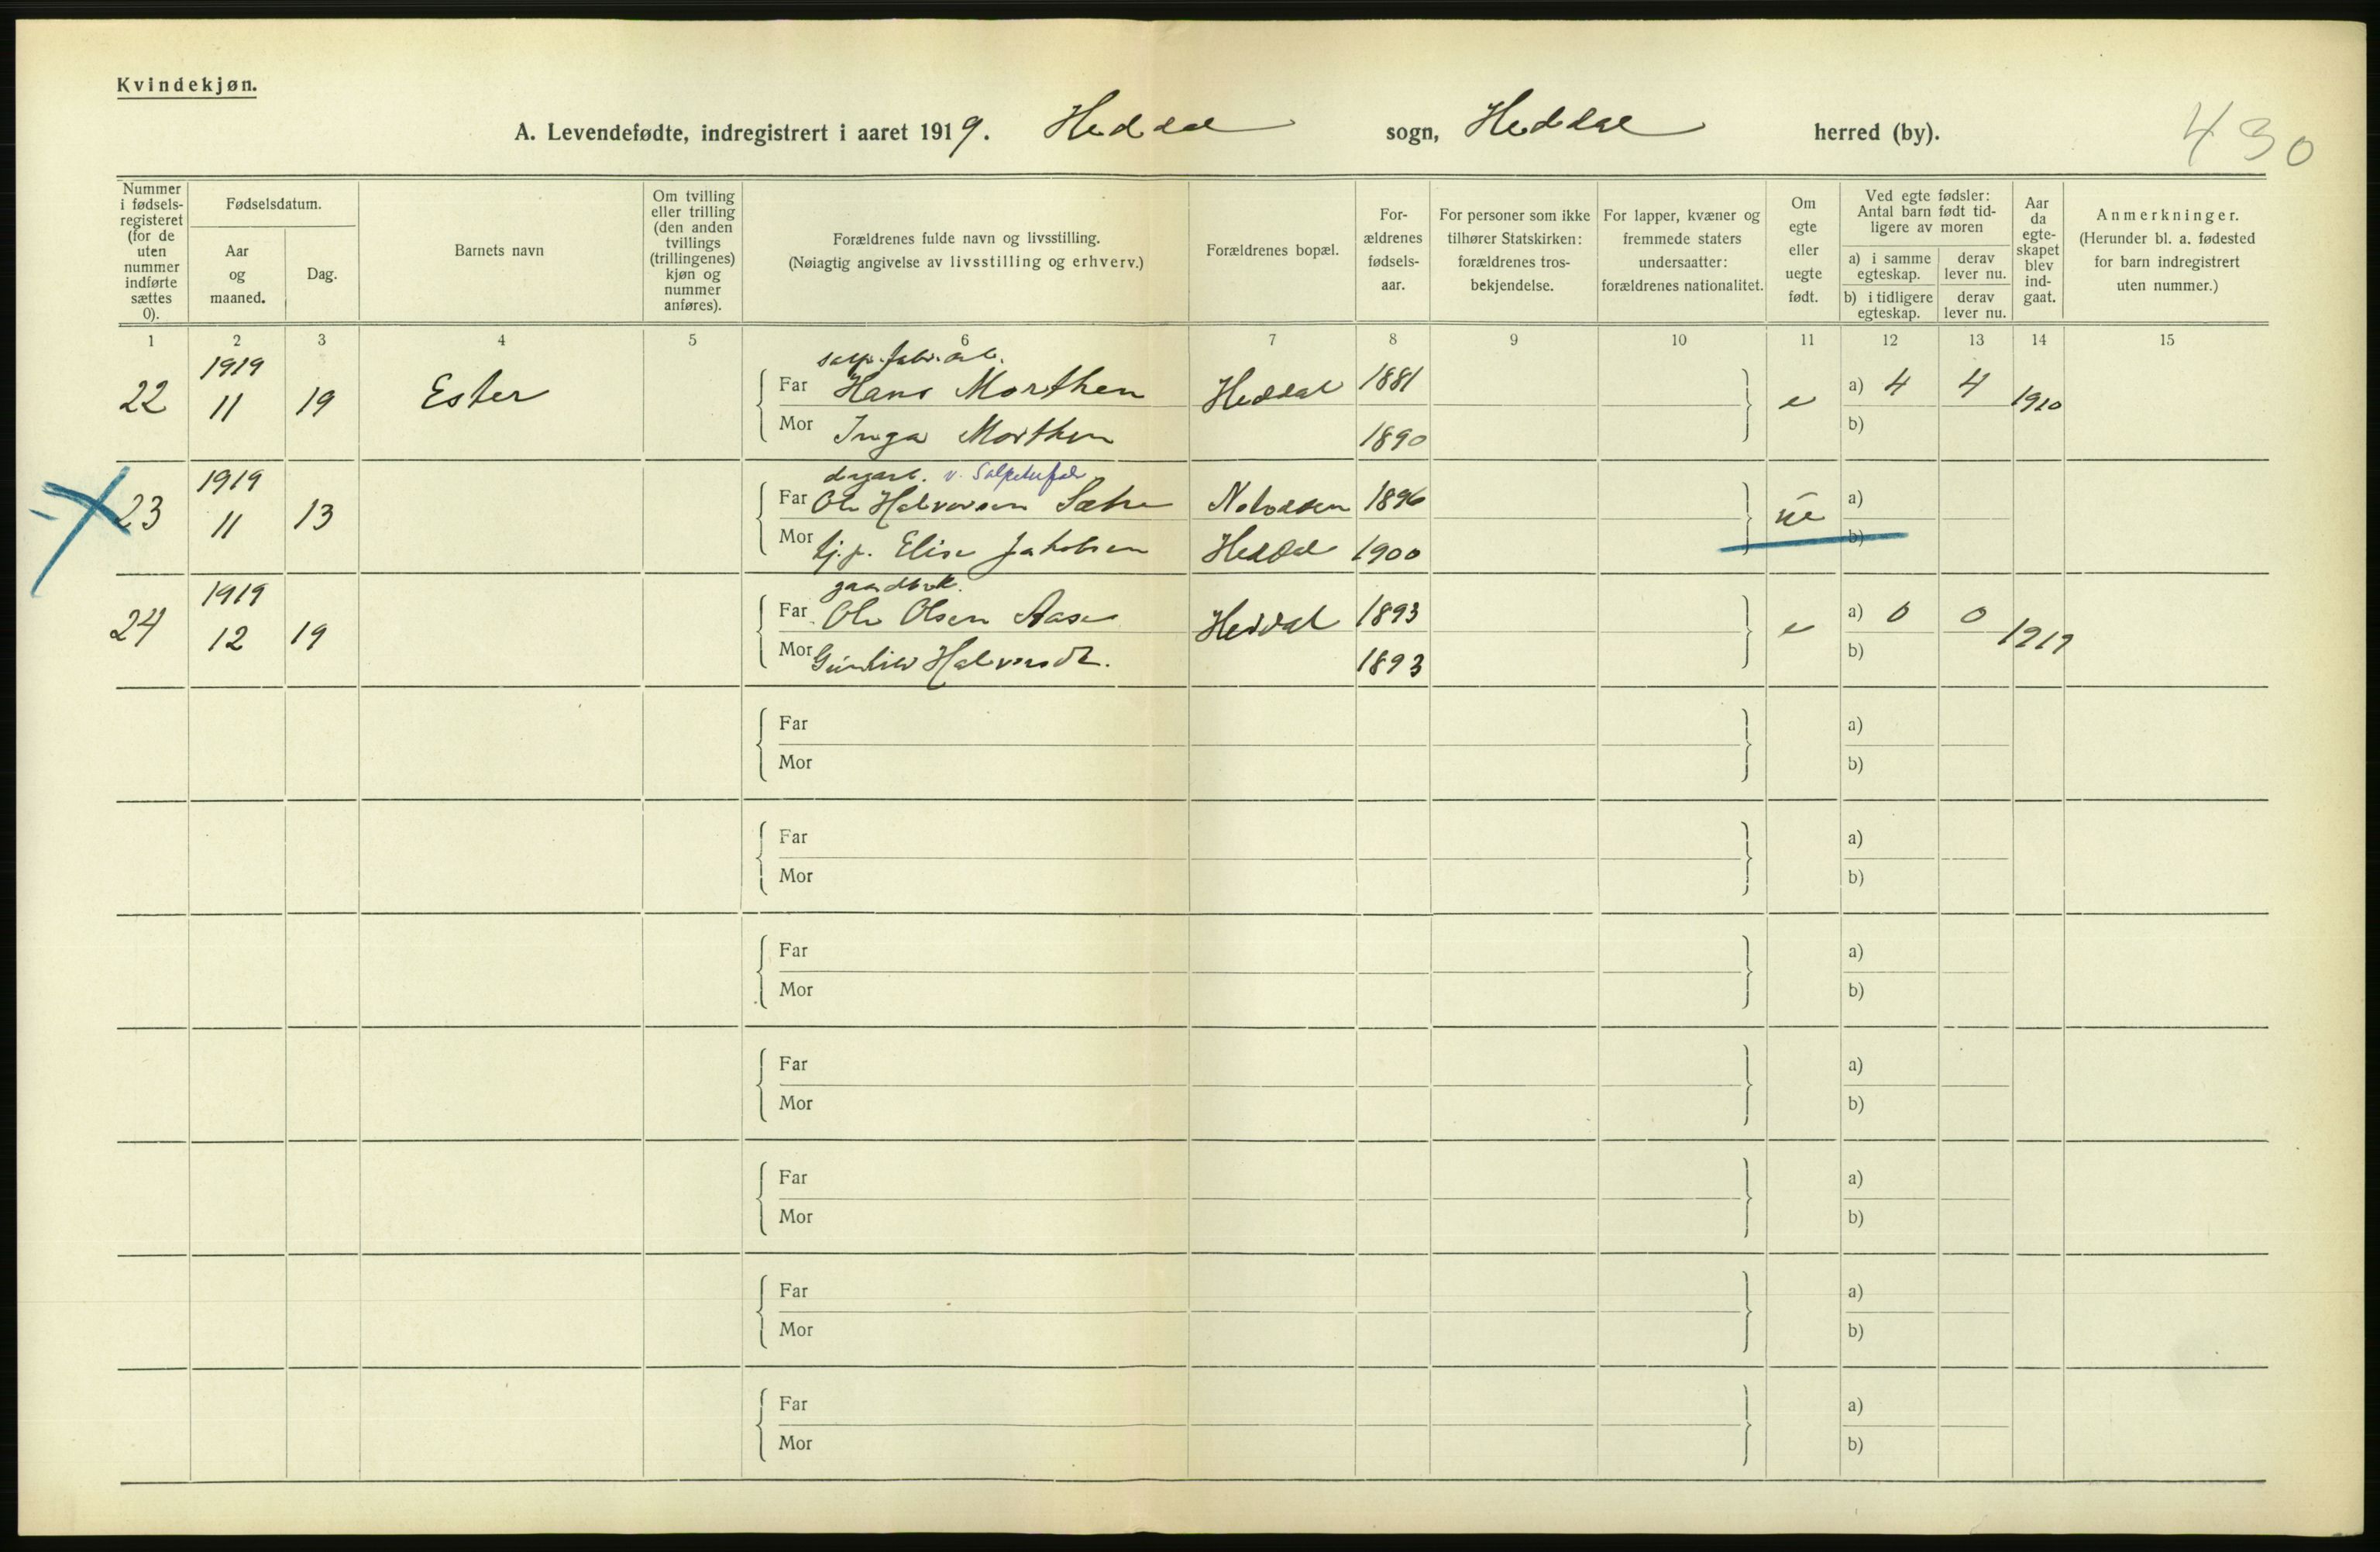 Kvindekjøn.
A. Levendefødte, indregistrert i aaret 1919. Heddal sogn, Heddal herred (by).
430
Nummer i fødsels-registeret (for de uten nummer indførte sættes 0).
Fødselsdatum.
Aar og maaned.
Dag.
Barnets navn
Om tvilling eller trilling (den anden tvillings (trillingenes) kjøn og nummer anføres).
Forældrenes fulde navn og livsstilling.
(Nøiagtig angivelse av livsstilling og erhverv.)
Forældrenes bopæl.
For-ældrenes fødsels-aar.
For personer som ikke tilhører Statskirken: forældrenes tros-bekjendelse.
For lapper, kvæner og fremmede staters undersaatter: forældrenes nationalitet.
Om egte eller uegte født.
Ved egte fødsler: Antal barn født tid-ligere av moren
a) i samme egteskap.
derav lever nu.
b) i tidligere egteskap.
derav lever nu.
Aar da egte-skapet blev ind-gaat.
Anmerkninger.
(Herunder bl. a. fødested for barn indregistrert uten nummer.)
1 2 3 4 5 6 7 8 9 10 11 12 13 14 15
salp. fabr. arb.
22 1919 11 19 Ester Far Hans Morthen Heddal 1881 e a) 4 4 1910
Mor Inga Morthen 1890 b)
dagarb. v. Salpeterfabr
23 1919 11 13 Far Ole Halvorsen Sætre Notodden 1896 ue a)
Mor tj.p. Elise Jakobsen Heddal 1900 b)
gaardbruk.
24 1919 12 19 Far Ole Olsen Aase Heddal 1893 e a) 0 0 1919
Mor Gunhild Halvorsdt. 1893 b)
Far a)
Mor b)
Far a)
Mor b)
Far a)
Mor b)
Far a)
Mor b)
Far a)
Mor b)
Far a)
Mor b)
Far a)
Mor b)